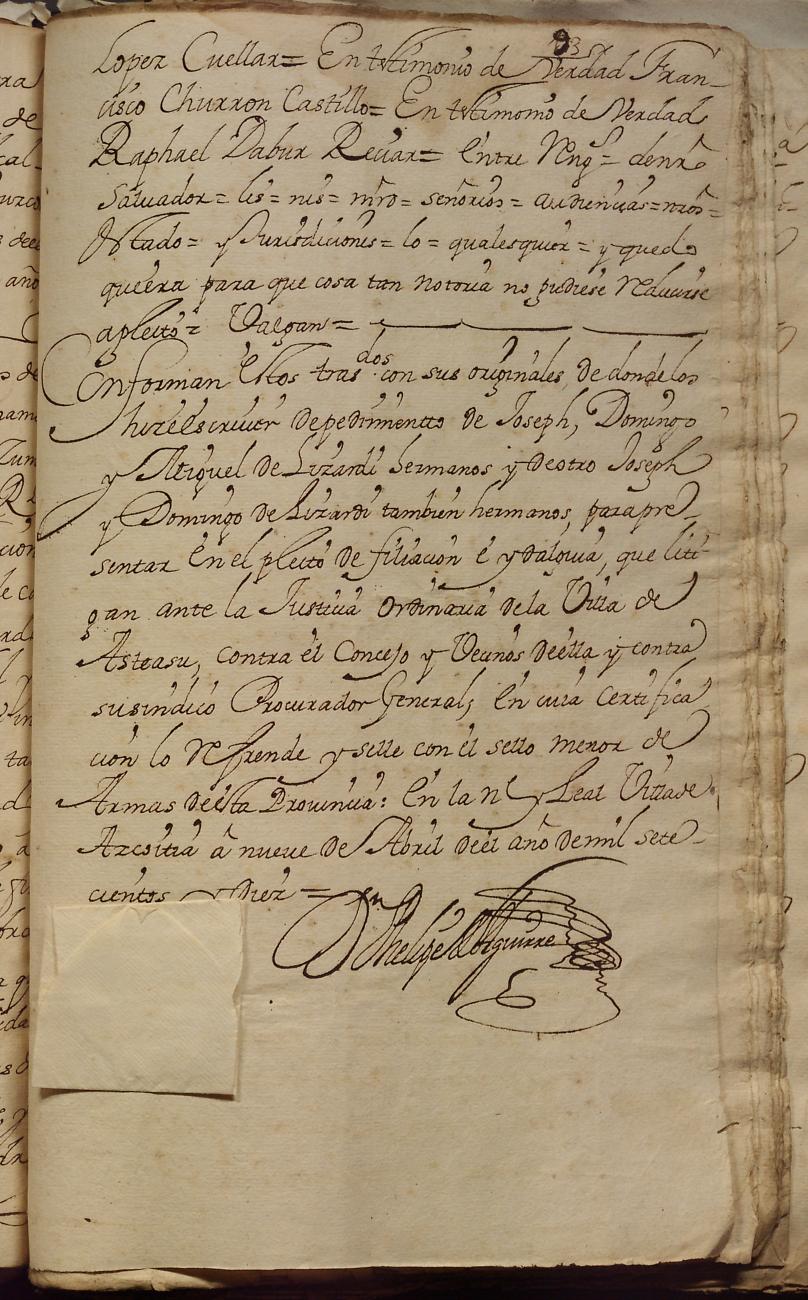 Lopez Cuellar = En testimonio de Verdad Fran-
cisco Churron Castillo = En testimonio de Verdad
Raphael Dabux Reciar = Entre Reng.s =
Salvador = lis = nis = mro = señorios = audiencias = nros =
estado = y Jurisdiciones = lo = qualesquier = y quedo
queera para que cosa tan notoria no pudiese Reducirse
apleito = Valgan =
Conforman estos traslados con sus originales de donde los
hize escrivir depedimentto de Joseph, Domingo
y Miguel de Lizardi hermanos y deotro Joseph
y Domingo de Lizardi tambien hermanos, para pre-
sentar en el pleito de filiacion e ydalguia, que liti-
gan ante la Justicia Ordinaria dela Villa de
Asteasu, contra el Concejo y Vecinos deella y contra
susindico Procurador General; En cuia Certifica
cion lo Refrende y selle con el sello menor de
Armas deesta Provincia: En la N. y Leal Villa de
Azcoitia â nueve de Abril deel año demil sete-
cientos y Diez =
Dn Phelipe de Aguirre